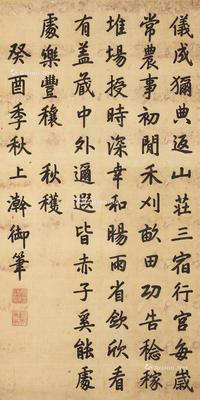 儀成獮典返山莊三宿行宮每歲
常農事初閒禾刈畝田功告稔稼
堆場授時深幸和暘雨省斂欣看
有盖蔵中外邇遐皆赤子奚能處
處樂豐穰 秋穫
癸酉季秋上澣御筆